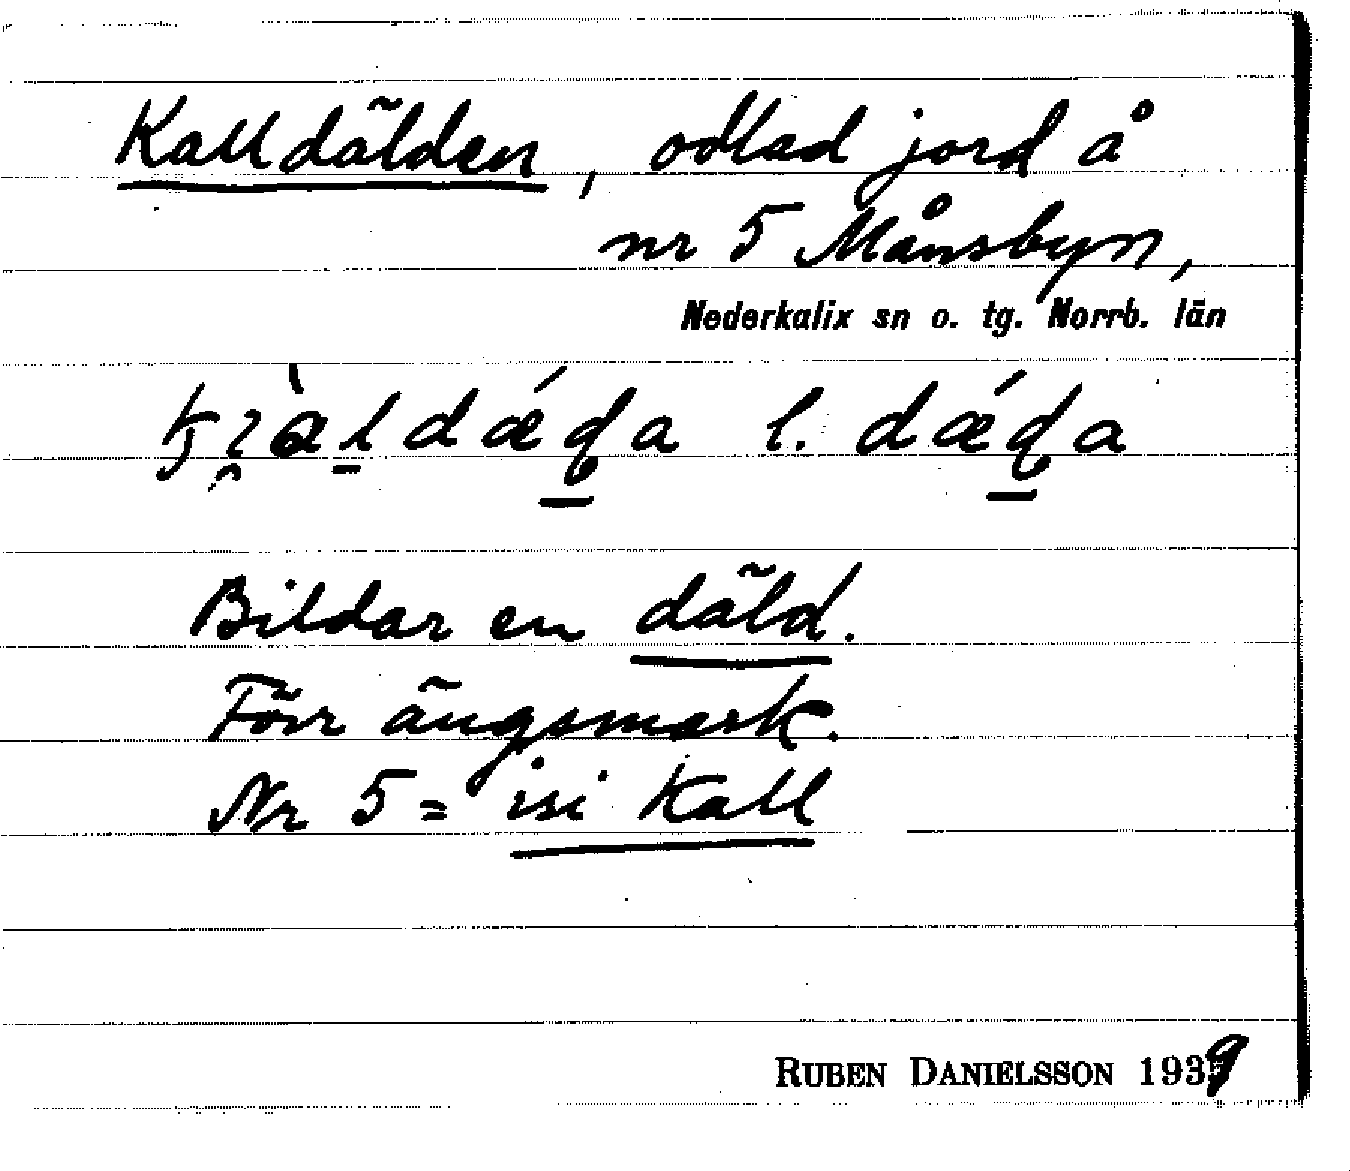 Kalldälden, odlad jord å
nr 5 Månsbyn,
Nederkalix sn o. tg. Norrb. län
l.
Bildar en däld.
Förr ängsmark.
Nr 5 = isi Kall
RUBEN DANIELSSON 1939